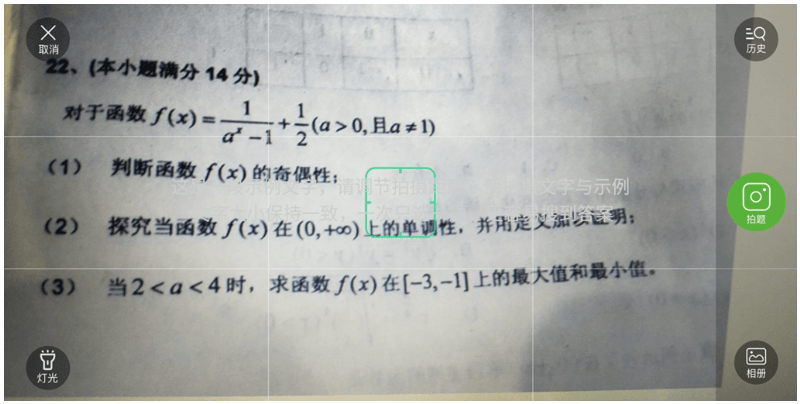 取消
历史
22、(本小题满分 14 分)
对于函数 f(x) = 1/(a^x − 1) + 1/2 (a > 0, 且 a ≠ 1)
(1) 判断函数 f(x) 的奇偶性;
(2) 探究当函数 f(x) 在 (0, +∞) 上的单调性, 并用定义加以证明;
(3) 当 2 < a < 4 时, 求函数 f(x) 在 [−3, −1] 上的最大值和最小值。
拍题
灯光
相册